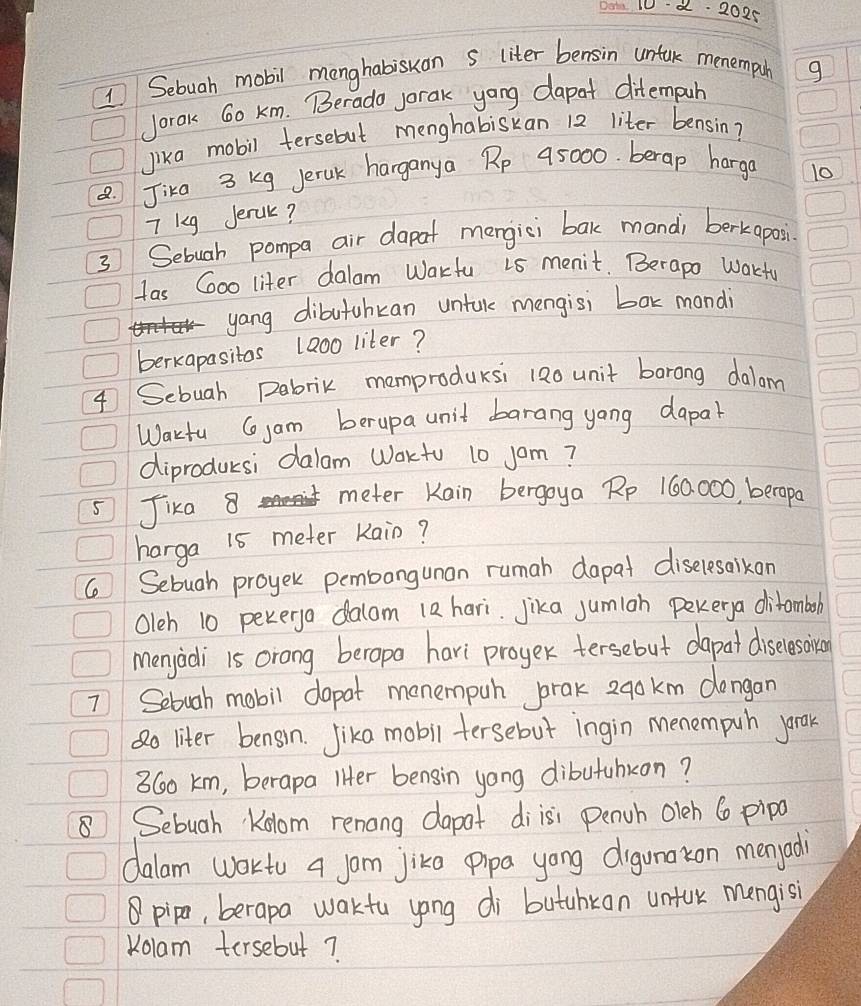 Date. 10 - 2 - 2025
1 Sebuah mobil menghabiskan 5 liter bensin untuk menempuh
Jarak 60 km. Berada jarak yang dapat ditempuh
Jika mobil tersebut menghabiskan 12 liter bensin?
2. Jika 3 kg Jeruk harganya Rp 45000. berap harga
7 kg Jeruk?
3 Sebuah pompa air dapat mengisi bak mandi berkapasi-
tas 600 liter dalam Waktu 15 menit. Berapa Waktu
yang dibutuhkan untuk mengisi bak mandi
berkapasitas 1200 liter?
4 Sebuah Pabrik memproduksi 120 unit barang dalam
Waktu 6 jam berupa unit barang yang dapat
diproduksi dalam Waktu 10 jam?
5 Jika 8 meter Kain bergaya Rp 160.000, berapa
harga 15 meter Kain?
6 Sebuah proyek pembangunan rumah dapat diselesaikan
Oleh 10 pekerja dalam 12 hari. Jika Jumlah pekerja ditambah
menjadi 15 orang berapa hari proyek tersebut dapat diselesaikan
7 Sebuah mobil dapat menempuh jarak 240 km dengan
20 liter bensin. Jika mobil tersebut ingin menempuh jarak
360 km, berapa liter bensin yang dibutuhkan?
8 Sebuah Kolam renang dapat di isi penuh oleh 6 pipa
dalam waktu 4 Jam jika pipa yang digunakan menjadi
8 pipa, berapa waktu yang di butuhkan untuk mengisi
Kolam tersebut?
9
10